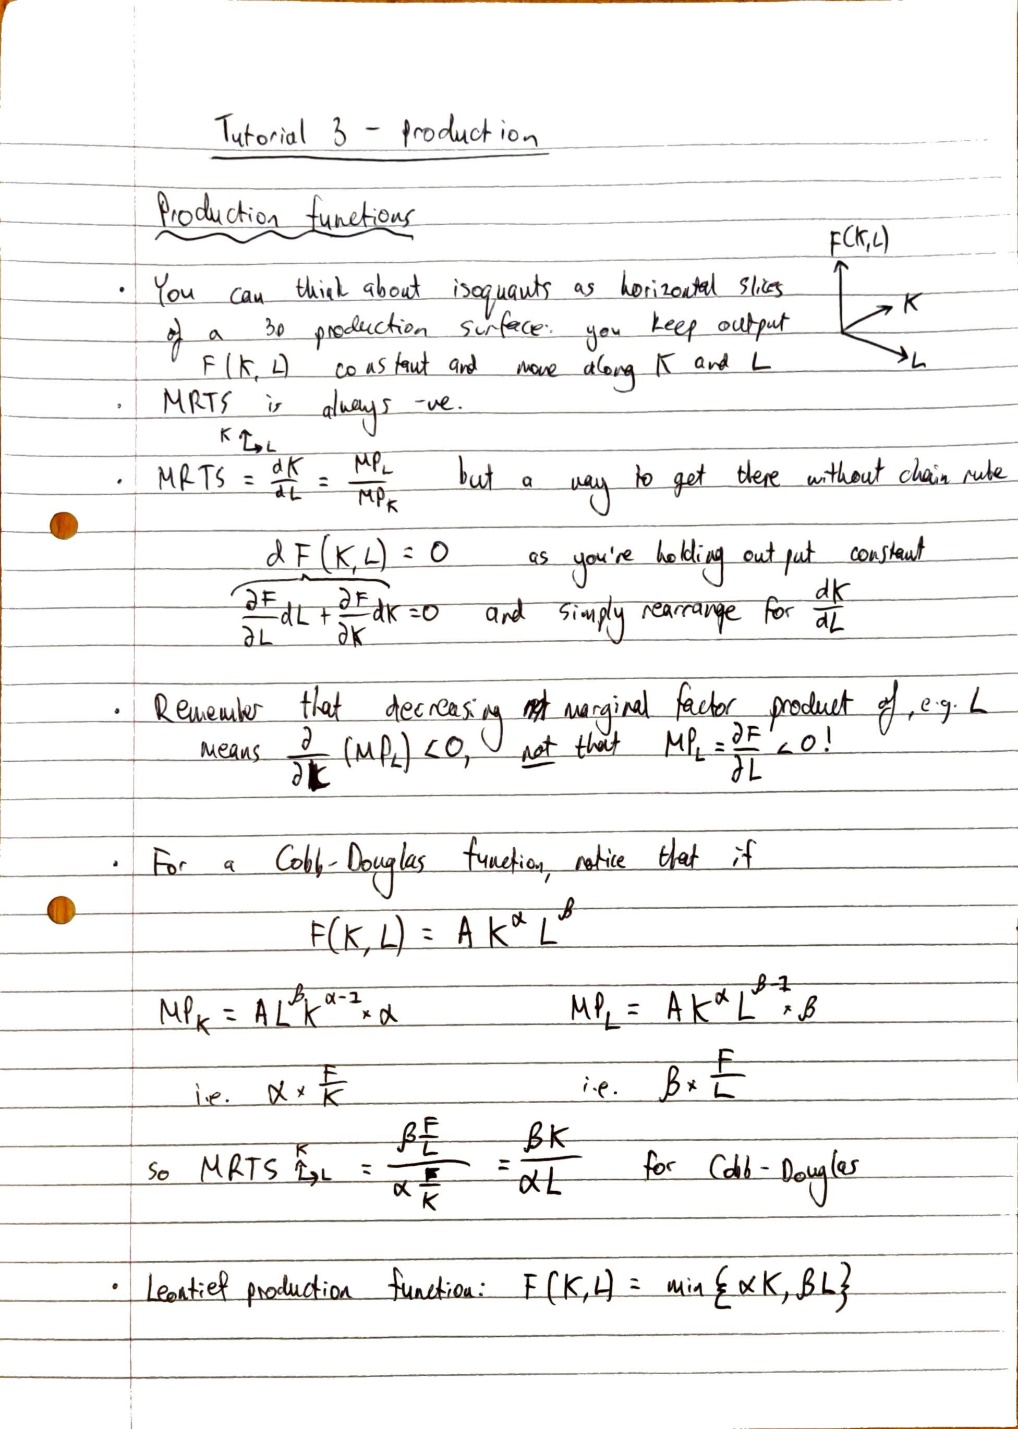 Tutorial 3 - production
Production functions
F(K,L)
K
L
· You can think about isoquants as horizontal slices
of a 3D production surface: you keep output
F(K, L) constant and move along K and L
· MRTS is always -ve.
K ↑→ L
· MRTS = dK/dL = MP_L/MP_K but a way to get there without chain rule
dF(K,L) = 0 as you're holding output constant
∂F/∂L dL + ∂F/∂K dK = 0 and simply rearrange for dK/dL
· Remember that decreasing marginal factor product of, e.g. L
means ∂/∂K (MP_L) < 0, not that MP_L = ∂F/∂L < 0!
· For a Cobb-Douglas function, notice that if
F(K, L) = A K^α L^β
MP_K = A L^β K^(α-1) × α MP_L = A K^α L^(β-1) × β
i.e. α × F/K i.e. β × F/L
so MRTS K↑→L = (β F/L)/(α F/K) = βK/αL for Cobb-Douglas
· Leontief production function: F(K,L) = min{αK, βL}